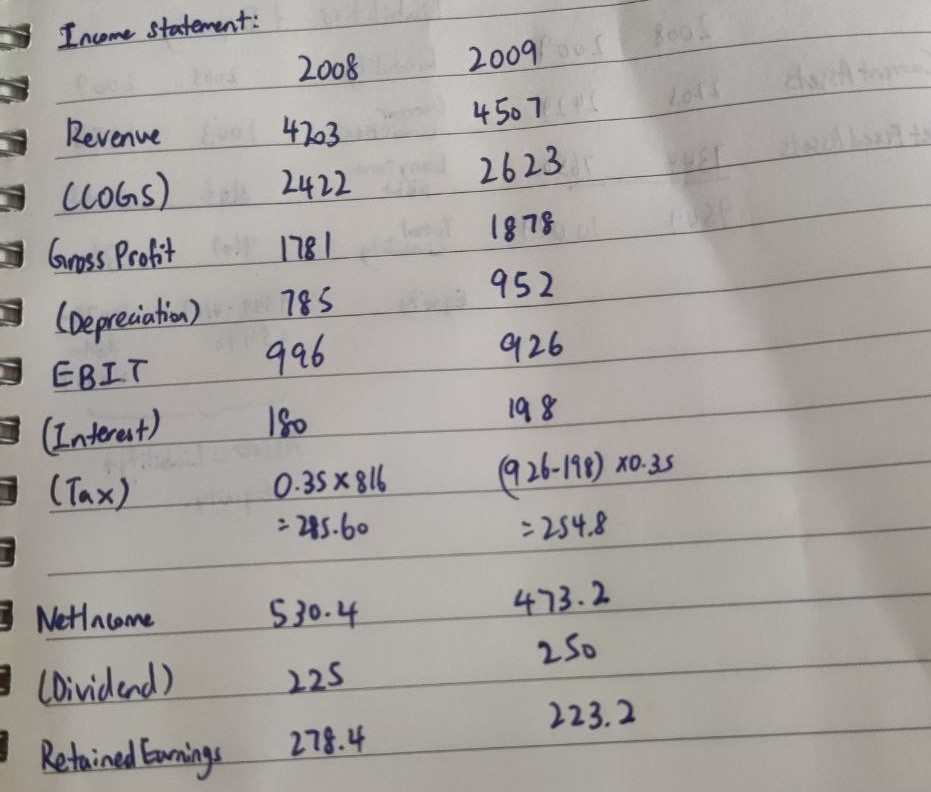 Income Statement:
2008 2009
Revenue 4203 4507
(COGS) 2422 2623
Gross Profit 1781 1878
(Depreciation) 785 952
EBIT 996 926
(Interest) 180 198
(Tax) 0.35 × 816 (926-198) × 0.35
= 285.60 = 254.8
Net Income 530.4 473.2
(Dividend) 225 250
Retained Earnings 278.4 223.2